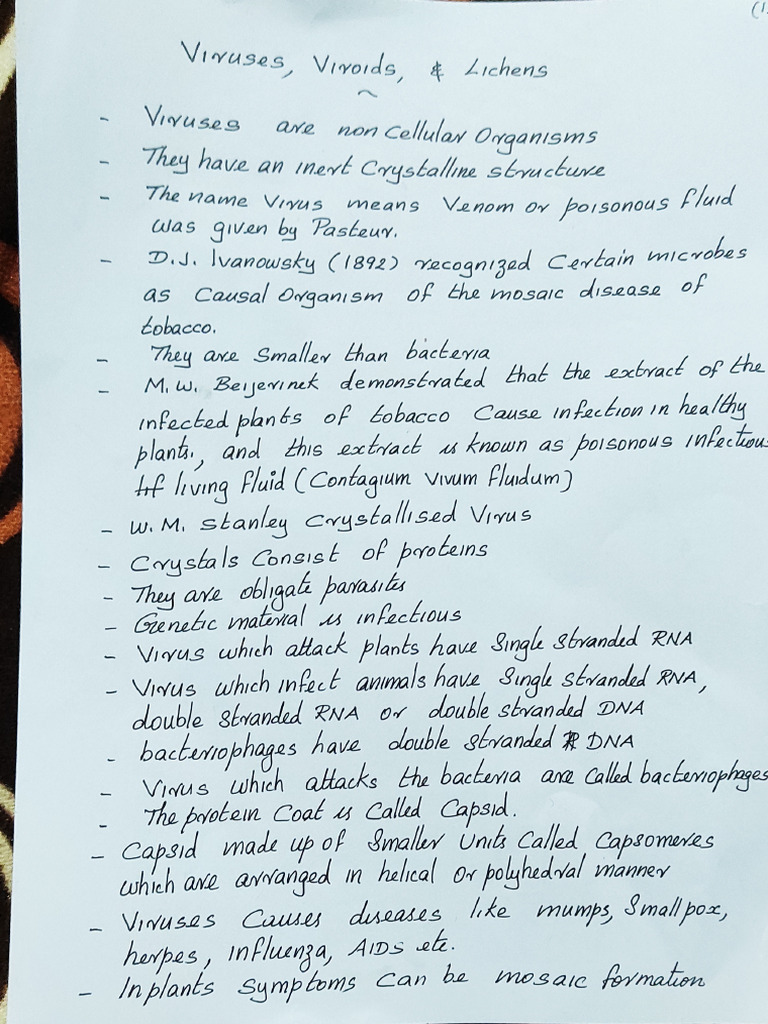 (1
Viruses, Viroids, & Lichens
- Viruses are non Cellular Organisms
- They have an inert Crystalline structure
- The name Virus means Venom or poisonous fluid
was given by Pasteur.
- D.J. Ivanowsky (1892) recognized Certain microbes
as Causal Organism of the mosaic disease of
tobacco.
- They are Smaller than bacteria
- M.W. Beijerinek demonstrated that the extract of the
infected plants of tobacco Cause infection in healthy
plants, and this extract is known as poisonous infectious
living fluid (Contagium Vivum fluidum)
- W.M. Stanley Crystallised Virus
- Crystals Consist of proteins
- They are obligate parasites
- Genetic material is infectious
- Virus which attack plants have Single Stranded RNA
- Virus which infect animals have Single stranded RNA,
double Stranded RNA or double stranded DNA
- bacteriophages have double stranded DNA
- Virus which attacks the bacteria are Called bacteriophages
- The protein Coat is Called Capsid.
- Capsid made up of Smaller Units Called Capsomeres
which are arranged in helical or polyhedral manner
- Viruses Causes diseases like mumps, Small pox,
herpes, influenza, AIDS etc.
- In plants Symptoms Can be mosaic formation